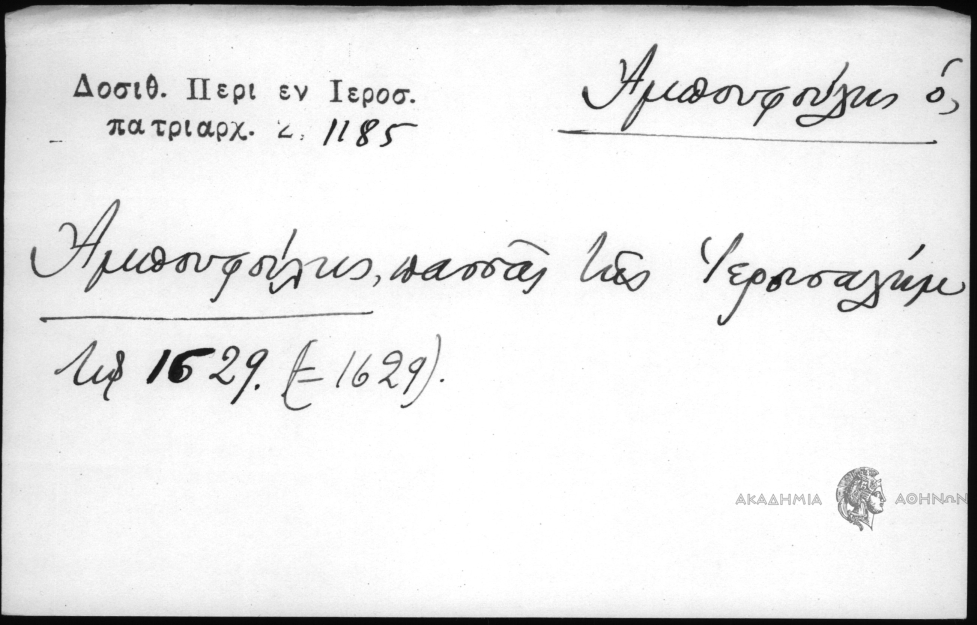 Δοσιθ. Περι εν Ιεροσ.
πατριαρχ. Σ. 1185
Ἀμπουφούλης ὁ,
Ἀμπουφούλης, πασσᾶς τῆς Ἱερουσαλήμ
τῷ 1629. (= 1629).
ΑΚΑΔΗΜΙΑ ΑΘΗΝΩΝ